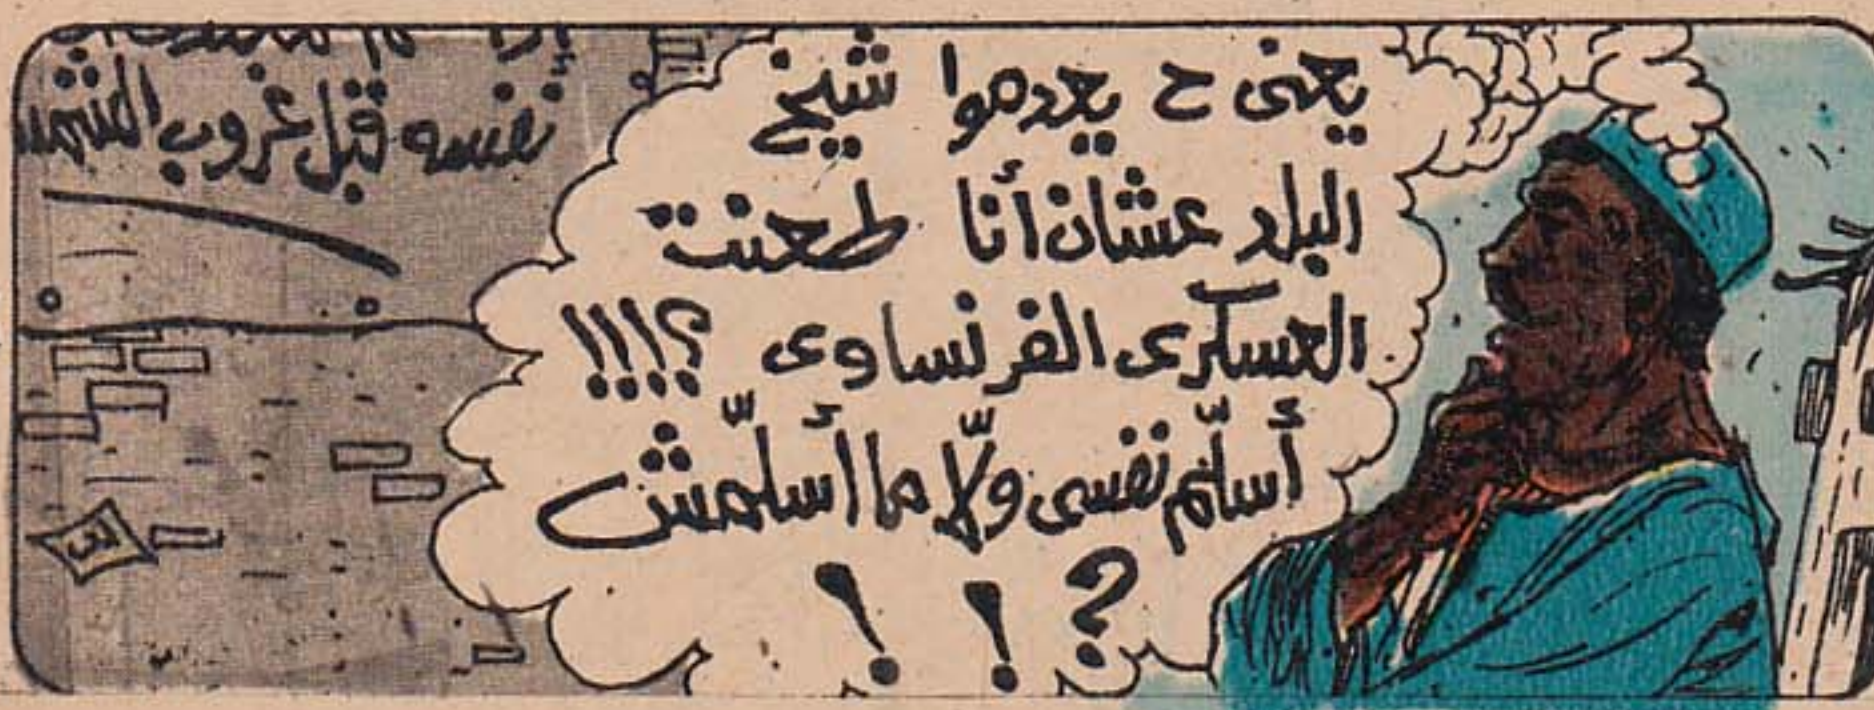 يعنى ح يعدموا شيخ
البلد عشان أنا طعنت
العسكرى الفرنساوى ؟!!!
أسلّم نفسى ولّا ما أسلّمش
؟!!
نفسه قبل غروب الشمس
٣